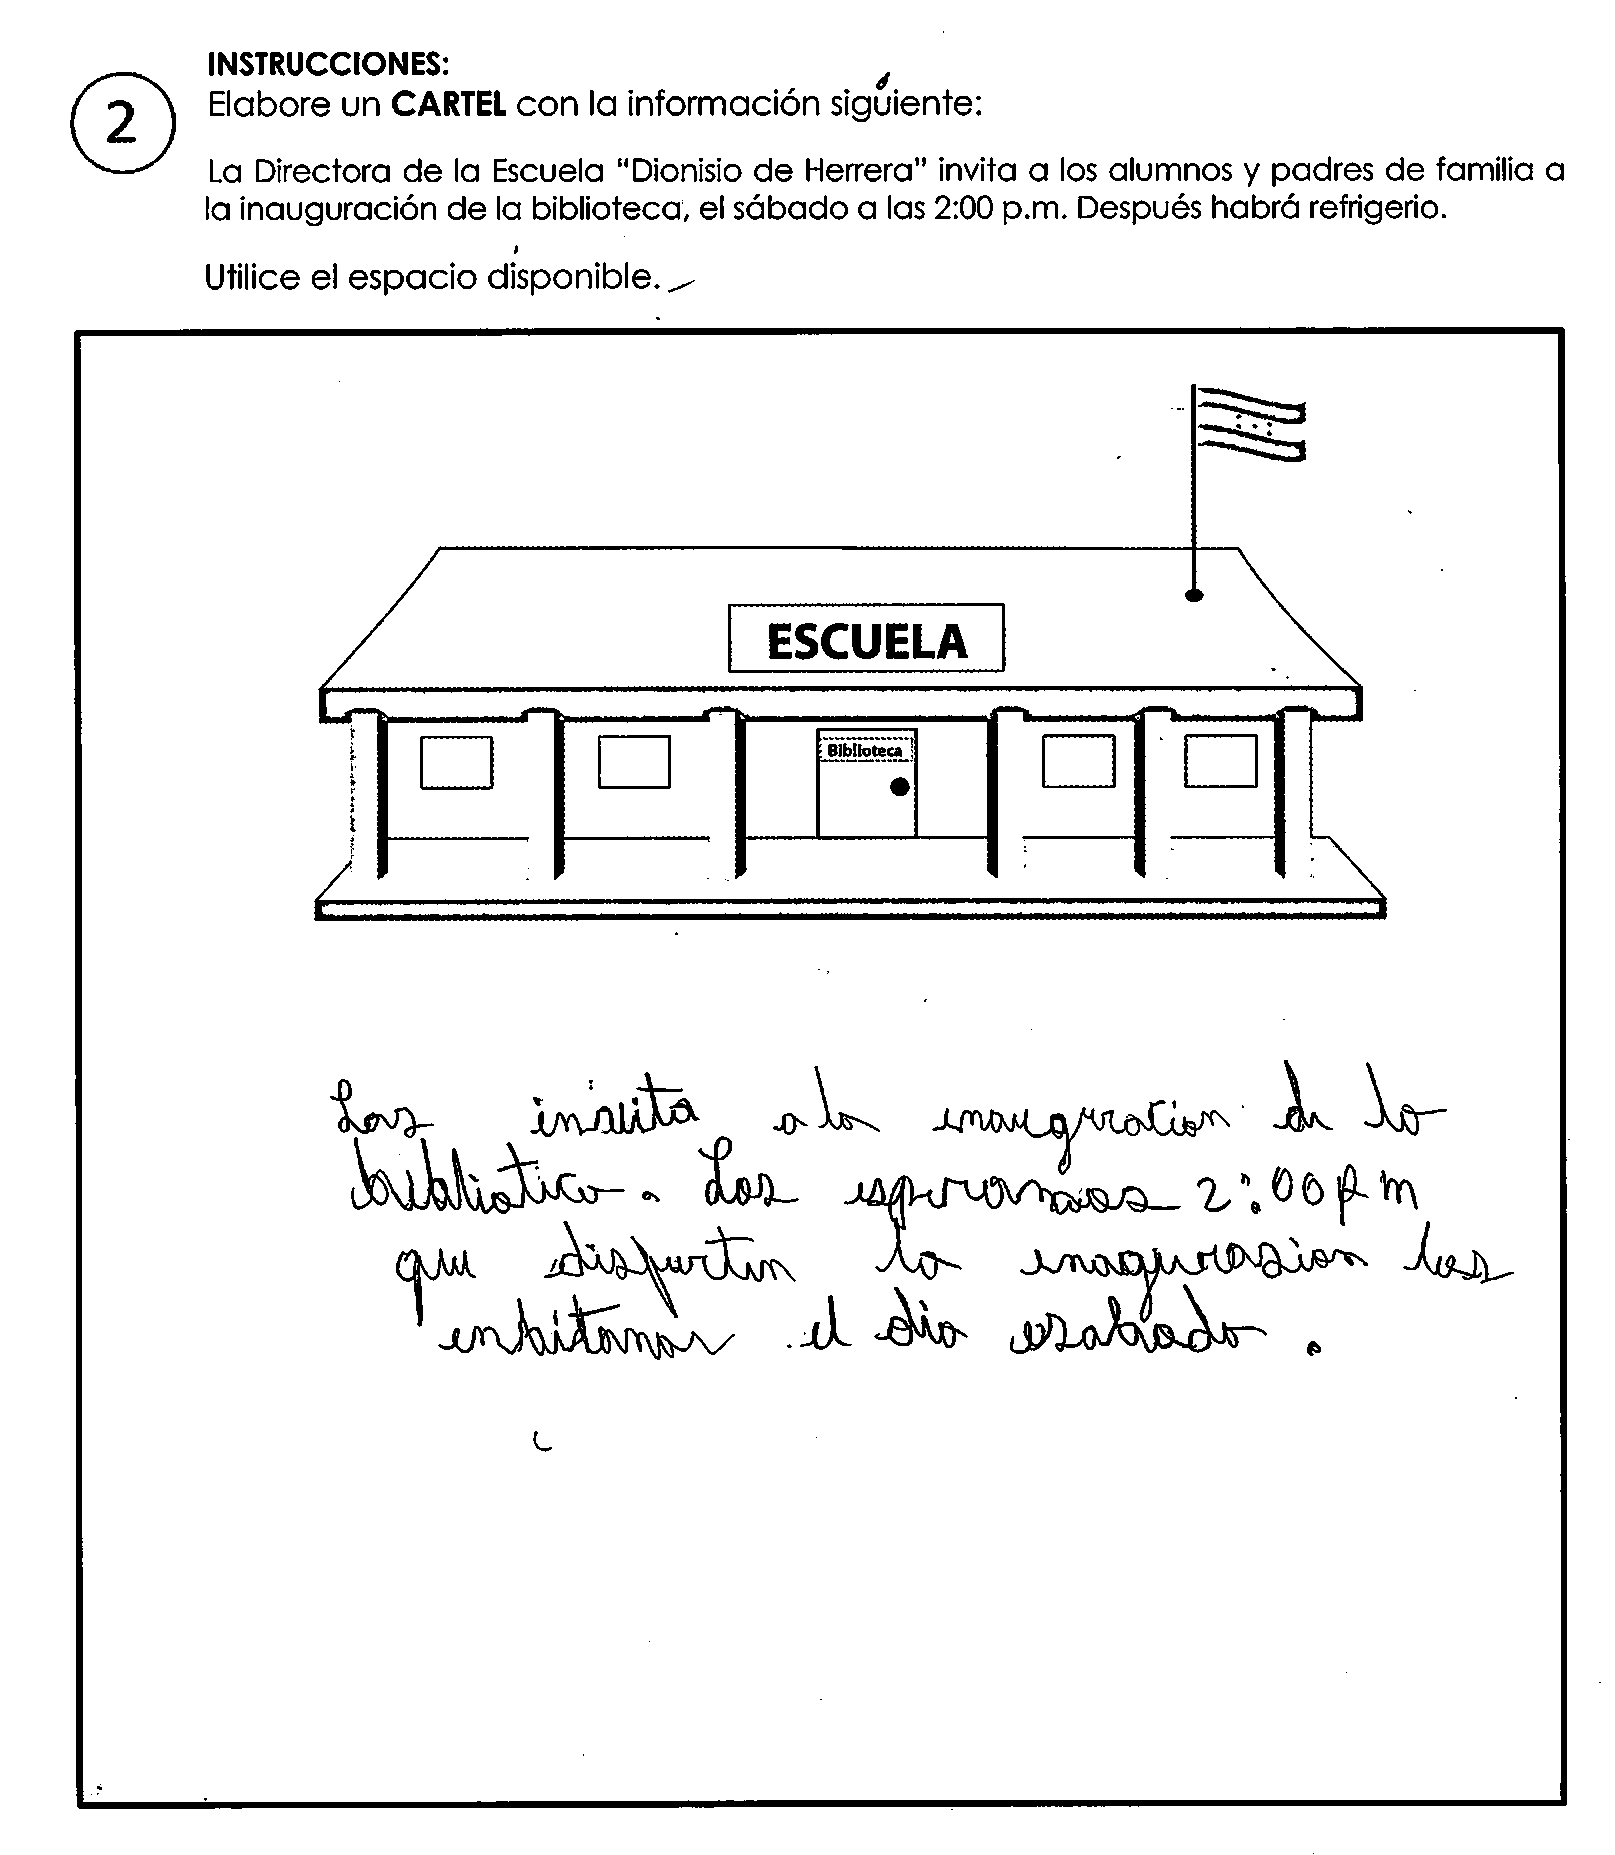 INSTRUCCIONES:
2
Elabore un CARTEL con la información siguiente:
La Directora de la Escuela "Dionisio de Herrera" invita a los alumnos y padres de familia a
la inauguración de la biblioteca, el sábado a las 2:00 p.m. Después habrá refrigerio.
Utilice el espacio disponible.
ESCUELA
Biblioteca
Los invita a la inauguracion de la
biblioteca. Los esperamos 2:00 p m
que disfurten la inagurasion los
enbitamos el dia esabado.